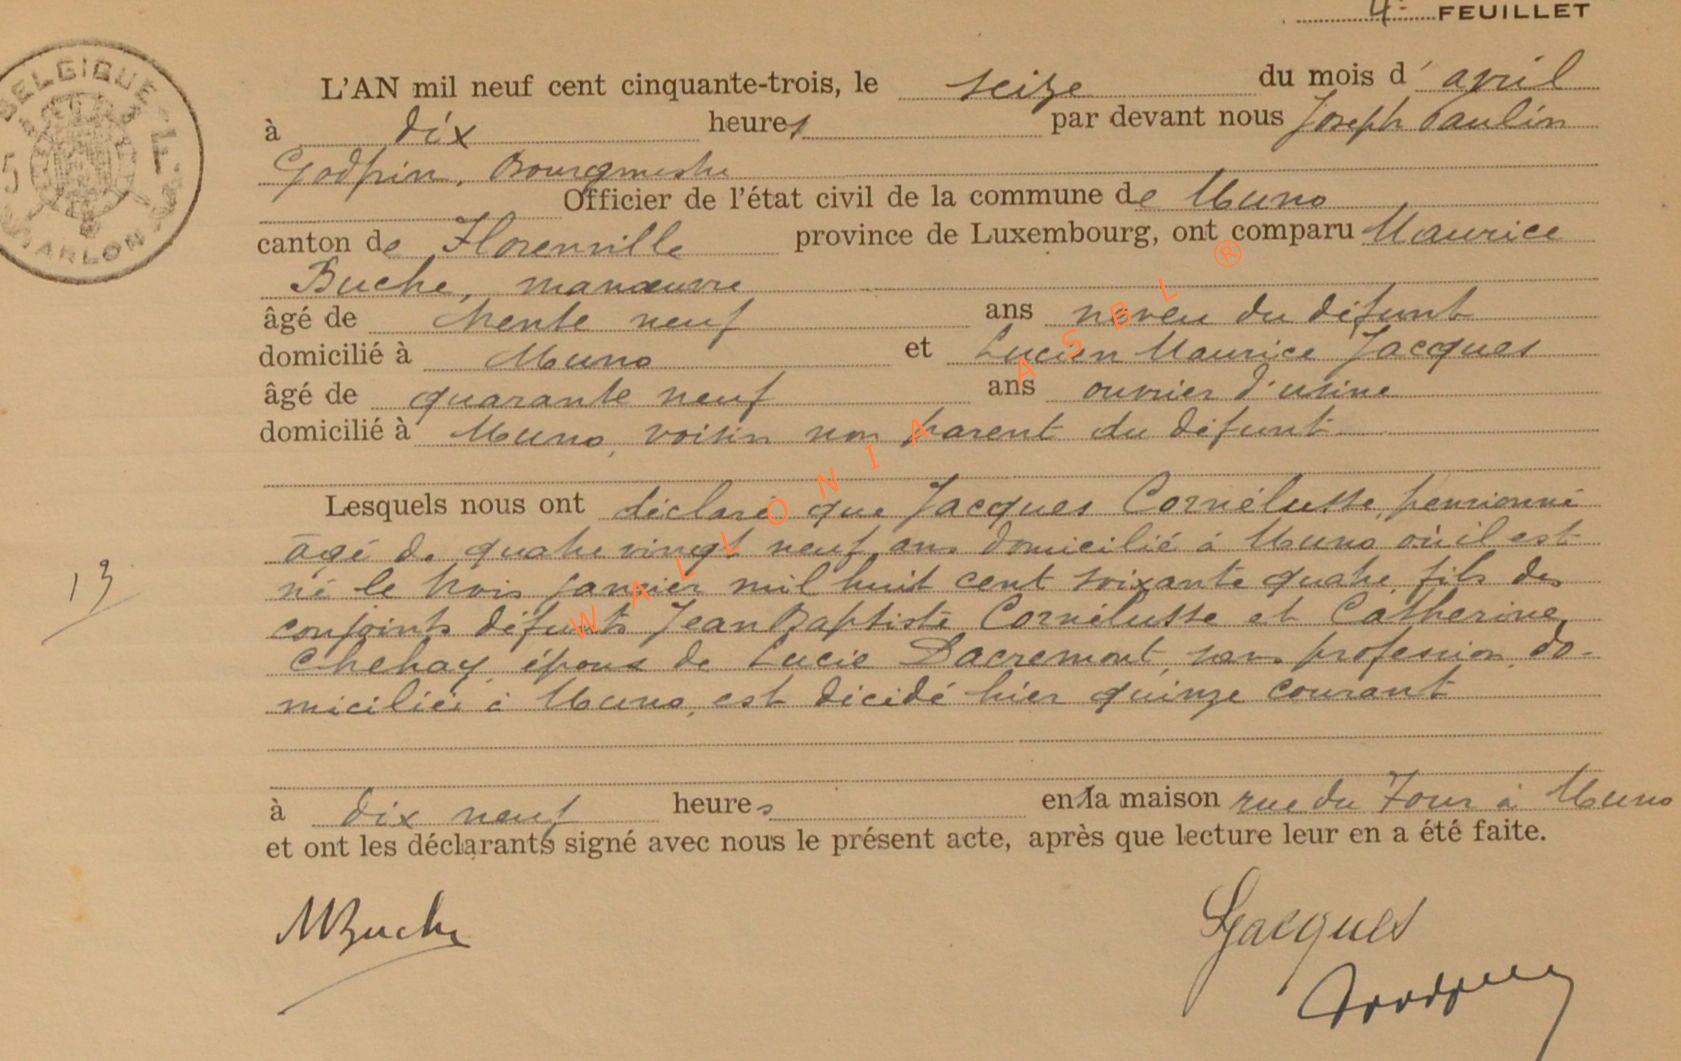 4e FEUILLET
BELGIQUE
5
ARLON
L'AN mil neuf cent cinquante-trois, le seize du mois d' avril
à dix heures par devant nous Joseph Paulin
Godfrin, Bourgmestre
Officier de l'état civil de la commune de Muno
canton de Florenville province de Luxembourg, ont comparu Maurice
Buche, manœuvre
âgé de trente neuf ans neveu du défunt
domicilié à Muno et Lucien Maurice Jacques
âgé de quarante neuf ans ouvrier d'usine
domicilié à Muno, voisin non parent du défunt
Lesquels nous ont déclaré que Jacques Cornélusse, pensionné
âgé de quatre vingt neuf ans domicilié à Muno où il est
né le trois janvier mil huit cent soixante quatre, fils des
conjoints défunts Jean Baptiste Cornélusse et Catherine
Chehay, époux de Lucie Dacremont, sans profession, do-
miciliée à Muno, est décidé hier quinze courant
13
à dix neuf heures en sa maison rue du Four à Muno
et ont les déclarants signé avec nous le présent acte, après que lecture leur en a été faite.
MBuche
LJacques
WALLONIA ASBL ®